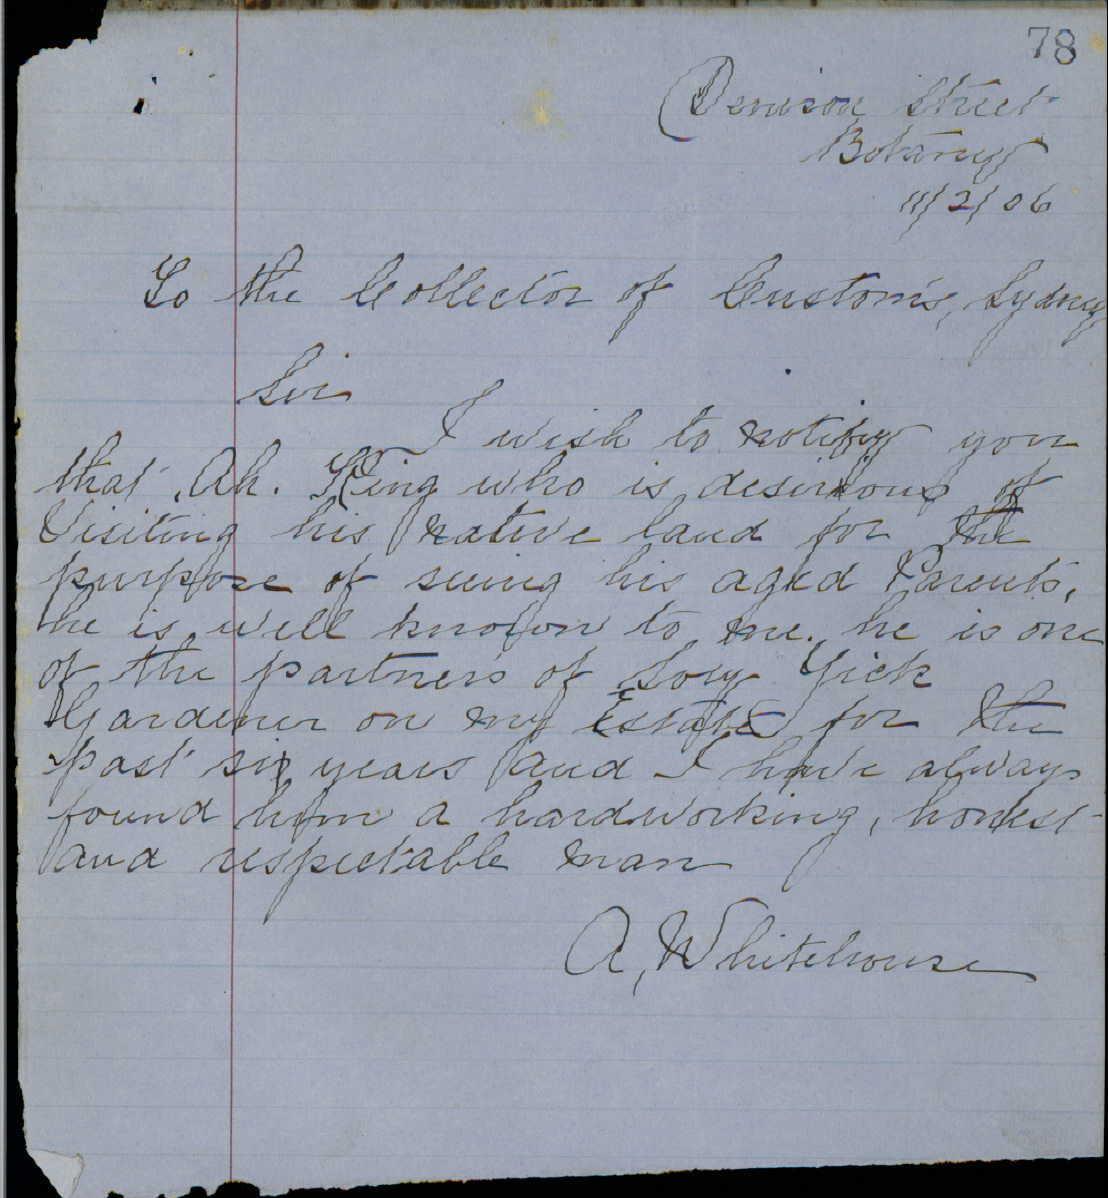 78
Denison Street
Botany
11/2/06
To the Collector of Custom's, Sydney
Sir
I wish to notify you
that Ah. King who is desirious of
Visiting his native land for the
purpose of seeing his aged Parents,
he is well known to me. he is one
of the partners of Sory Yick
Gardener on my Estate for the
past six years and I have always
found him a hardworking, honest
and respectable man
A, Whitehouse